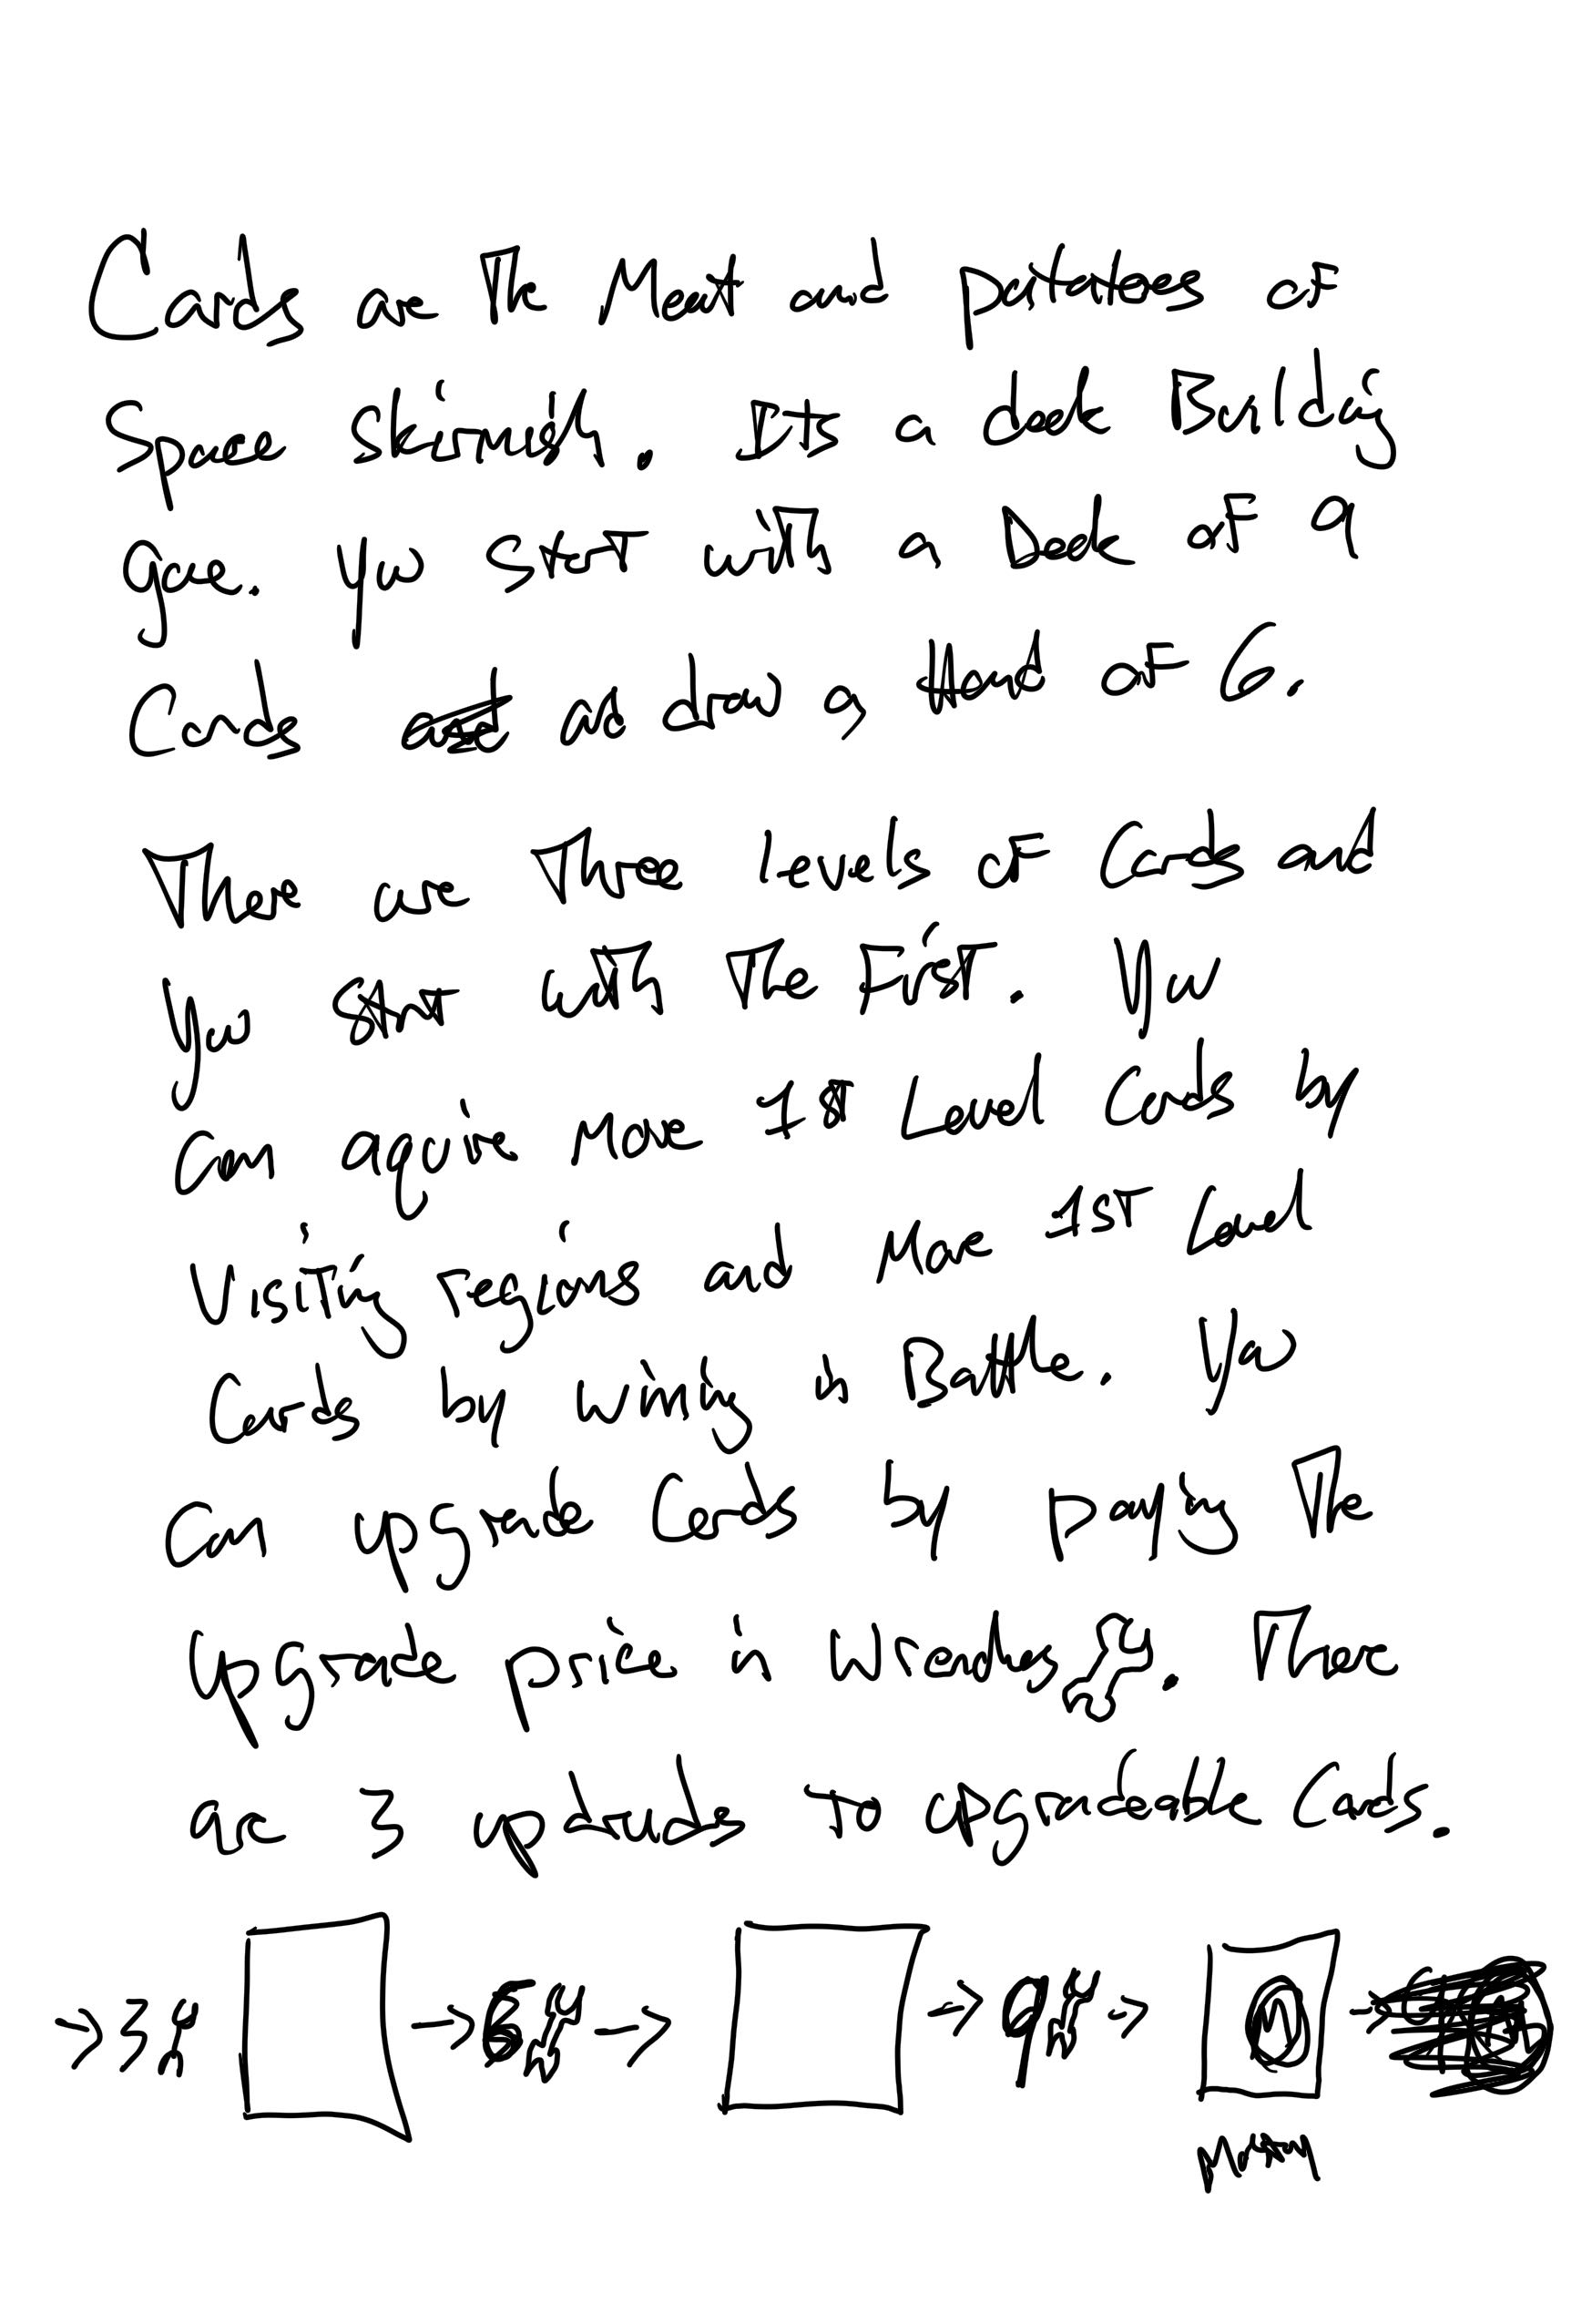 Cards are The Meat and potatoes of
Space Skirmish. Its a deck Building
game. You start with a Deck of 9
Cards and draw a Hand of 6.
There are Three levels of Cards and
you start with The First. You
can aquire more 1st Level Cards by
Visiting regions and more 1st Level
Cards by wining in Battle. You
can upgrade Cards by paying The
Upgrade price in Wrenches. There
are 3 updates to upgradeable Cards.
→ 3 → 6 → → 9 → M →